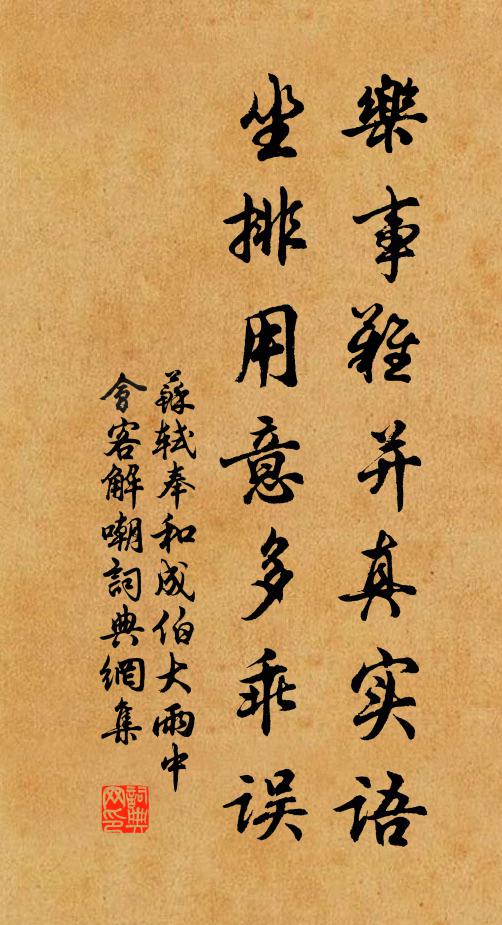 樂事難并真实语
坐排用意多乖误
蘇軾奉和成伯大雨中
會客解嘲詞典網集
詞典
网印